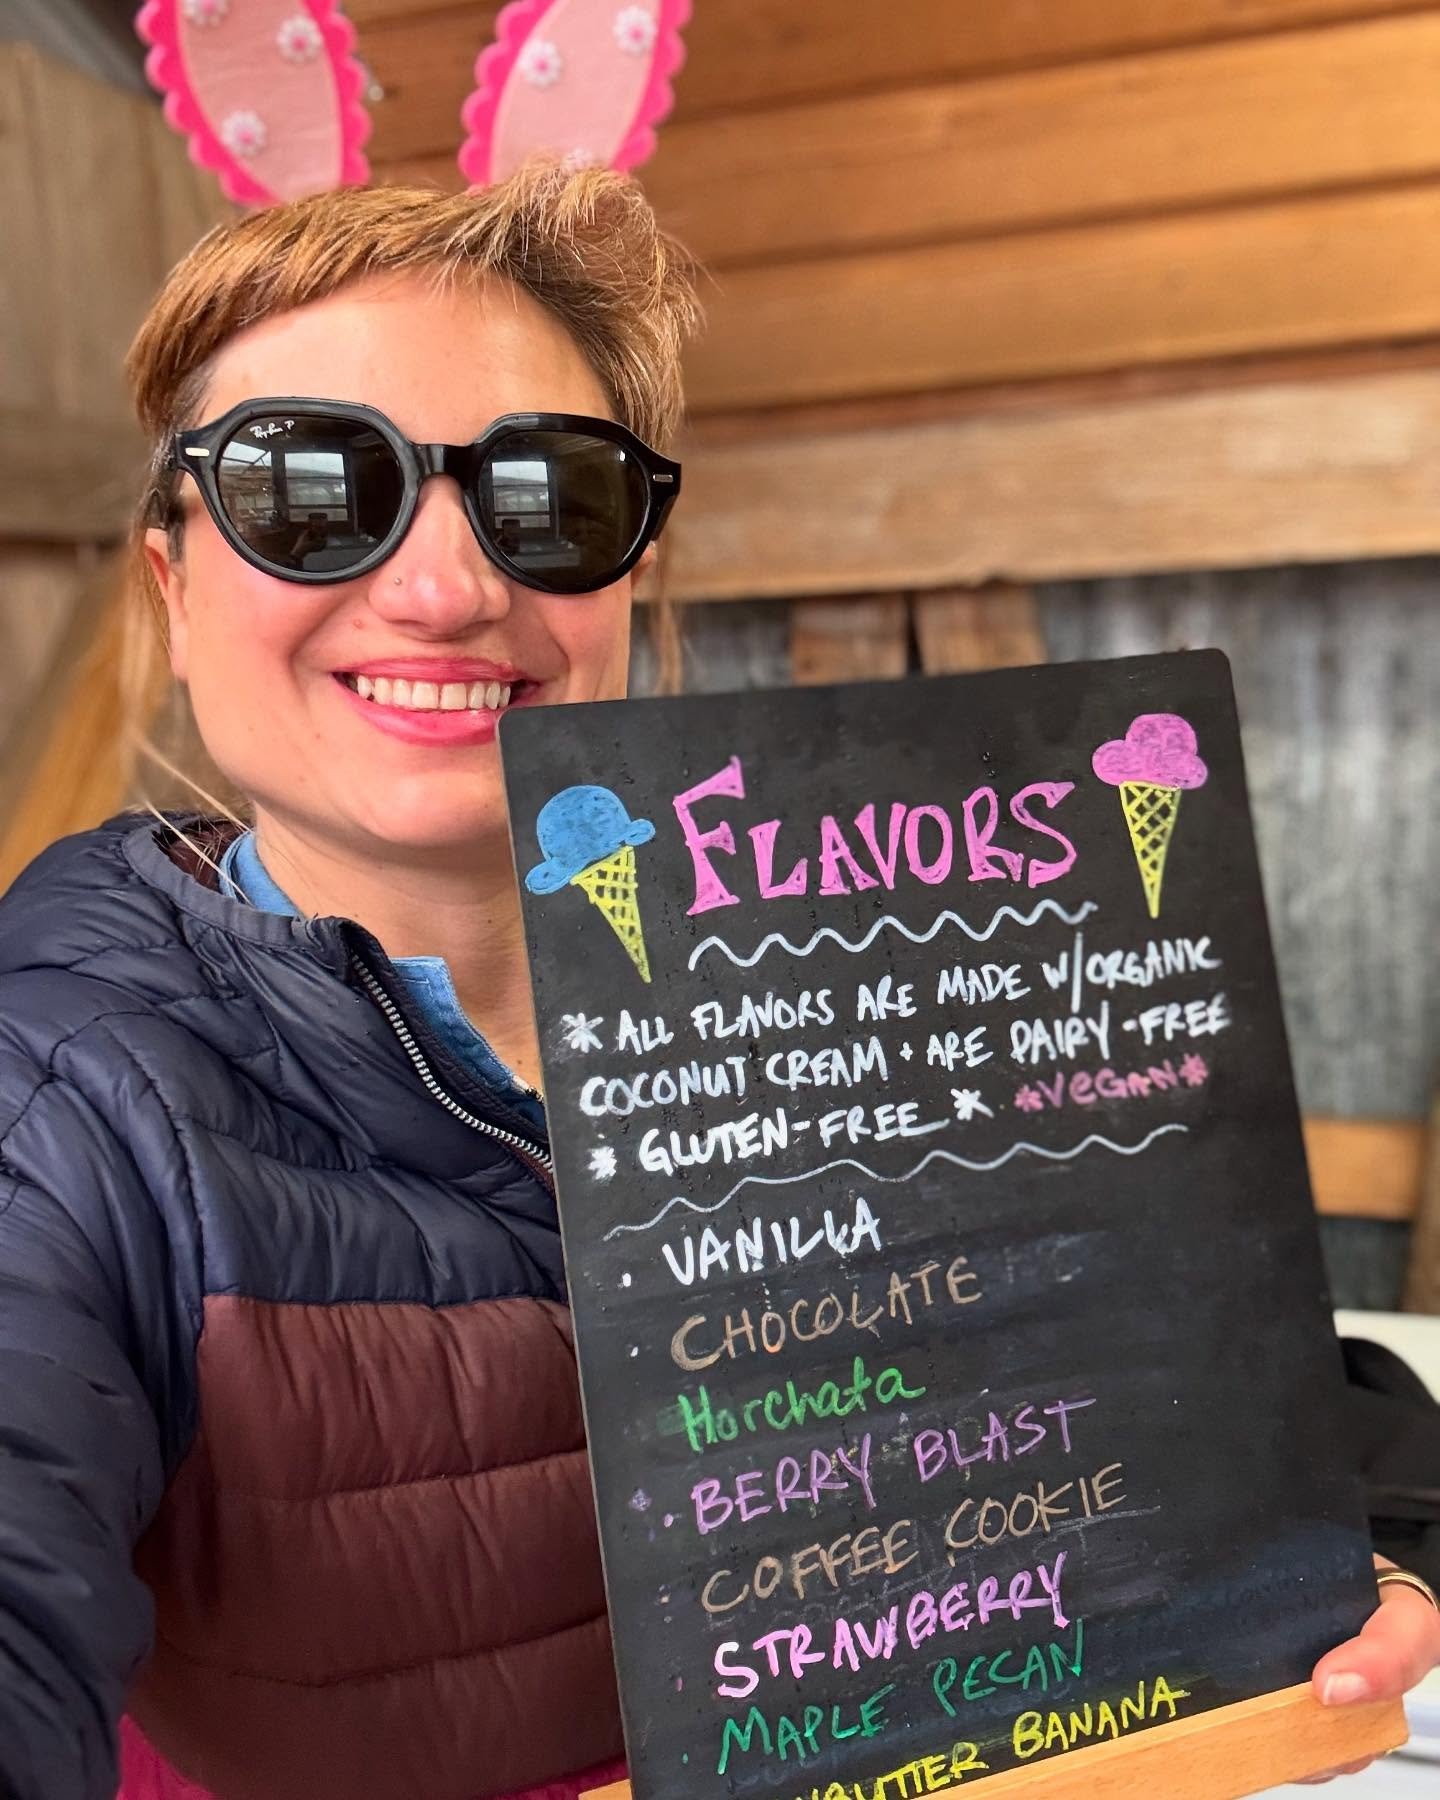 Ray-Ban P
FLAVORS
*ALL FLAVORS ARE MADE W/ORGANIC
COCONUT CREAM + ARE DAIRY-FREE
* GLUTEN-FREE * *VEGAN*
• VANILLA
• CHOCOLATE
Horchata
• BERRY BLAST
• COFFEE COOKIE
• STRAWBERRY
• MAPLE PECAN
BANANA